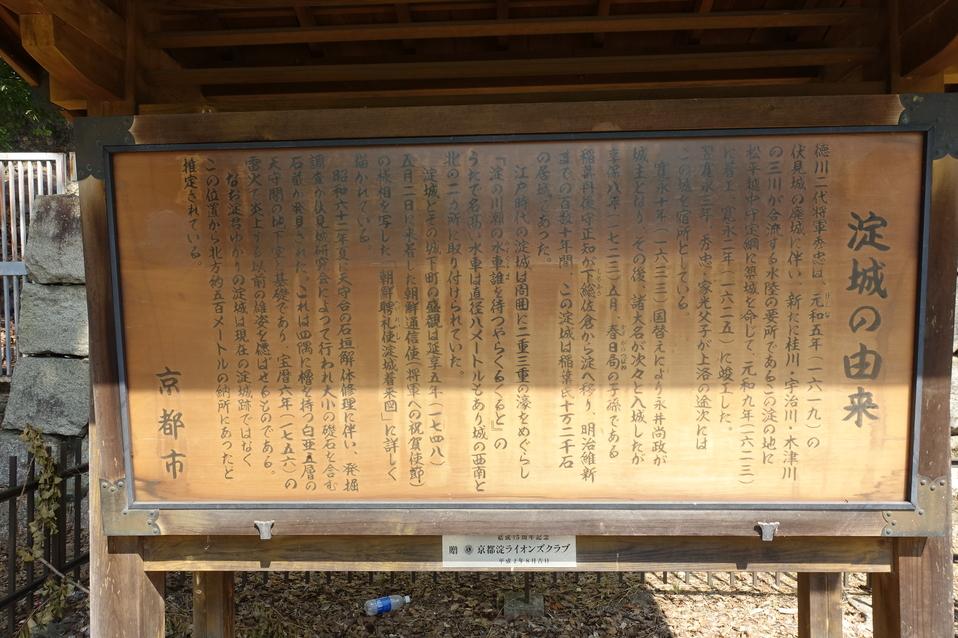 淀城の由来
徳川二代将軍秀忠は、元和五年(一六一九)の
伏見城の廃城に伴い、新たに桂川・宇治川・木津川
の三川が合流する水陸の要所であるこの淀の地に
松平越中守定綱に築城を命じて、元和九年(一六二三)
に着工、寛永二年(一六二五)に竣工した。
翌寛永三年、秀忠、家光父子が上洛の途次には
この城を宿所としている。
寛永十年(一六三三)国替えにより永井尚政が
城主となり、その後、諸大名が次々と入城したが
享保八年(一七二三)五月、春日局の子孫である
稲葉丹後守正知が下総佐倉から淀へ移り、明治維新
までの百数十年間、この淀城は稲葉氏十万二千石
の居城であった。
江戸時代の淀城は周囲に二重三重の濠をめぐらし
『淀の川瀬の水車誰を待つやらくるくると』の
うたで名高い水車は直径八メートルもあり城の西南と
北の二ヵ所に取り付けられていた。
淀城とその城下町の盛観は延享五年(一七四八)
五月二日に来着した朝鮮通信使(将軍への祝賀使節)
の様相を写した「朝鮮聘礼使淀城着来図」に詳しく
描かれている。
昭和六十二年夏に天守台の石垣解体修理に伴い、発掘
調査が伏見城研究会によって行われ大小の礎石を含む
石蔵が発見された。これは四隅に櫓を持つ白亜五層の
天守閣の地下室と基礎であり、宝暦六年(一七五六)の
雷火で炎上する以前の雄姿を偲ばせるものである。
なお淀君ゆかりの淀城は現在の淀城跡ではなく
この位置から北方約五百メートルの納所にあったと
推定されている。
京都市
結成15周年記念
贈 京都淀ライオンズクラブ
平成2年8月吉日